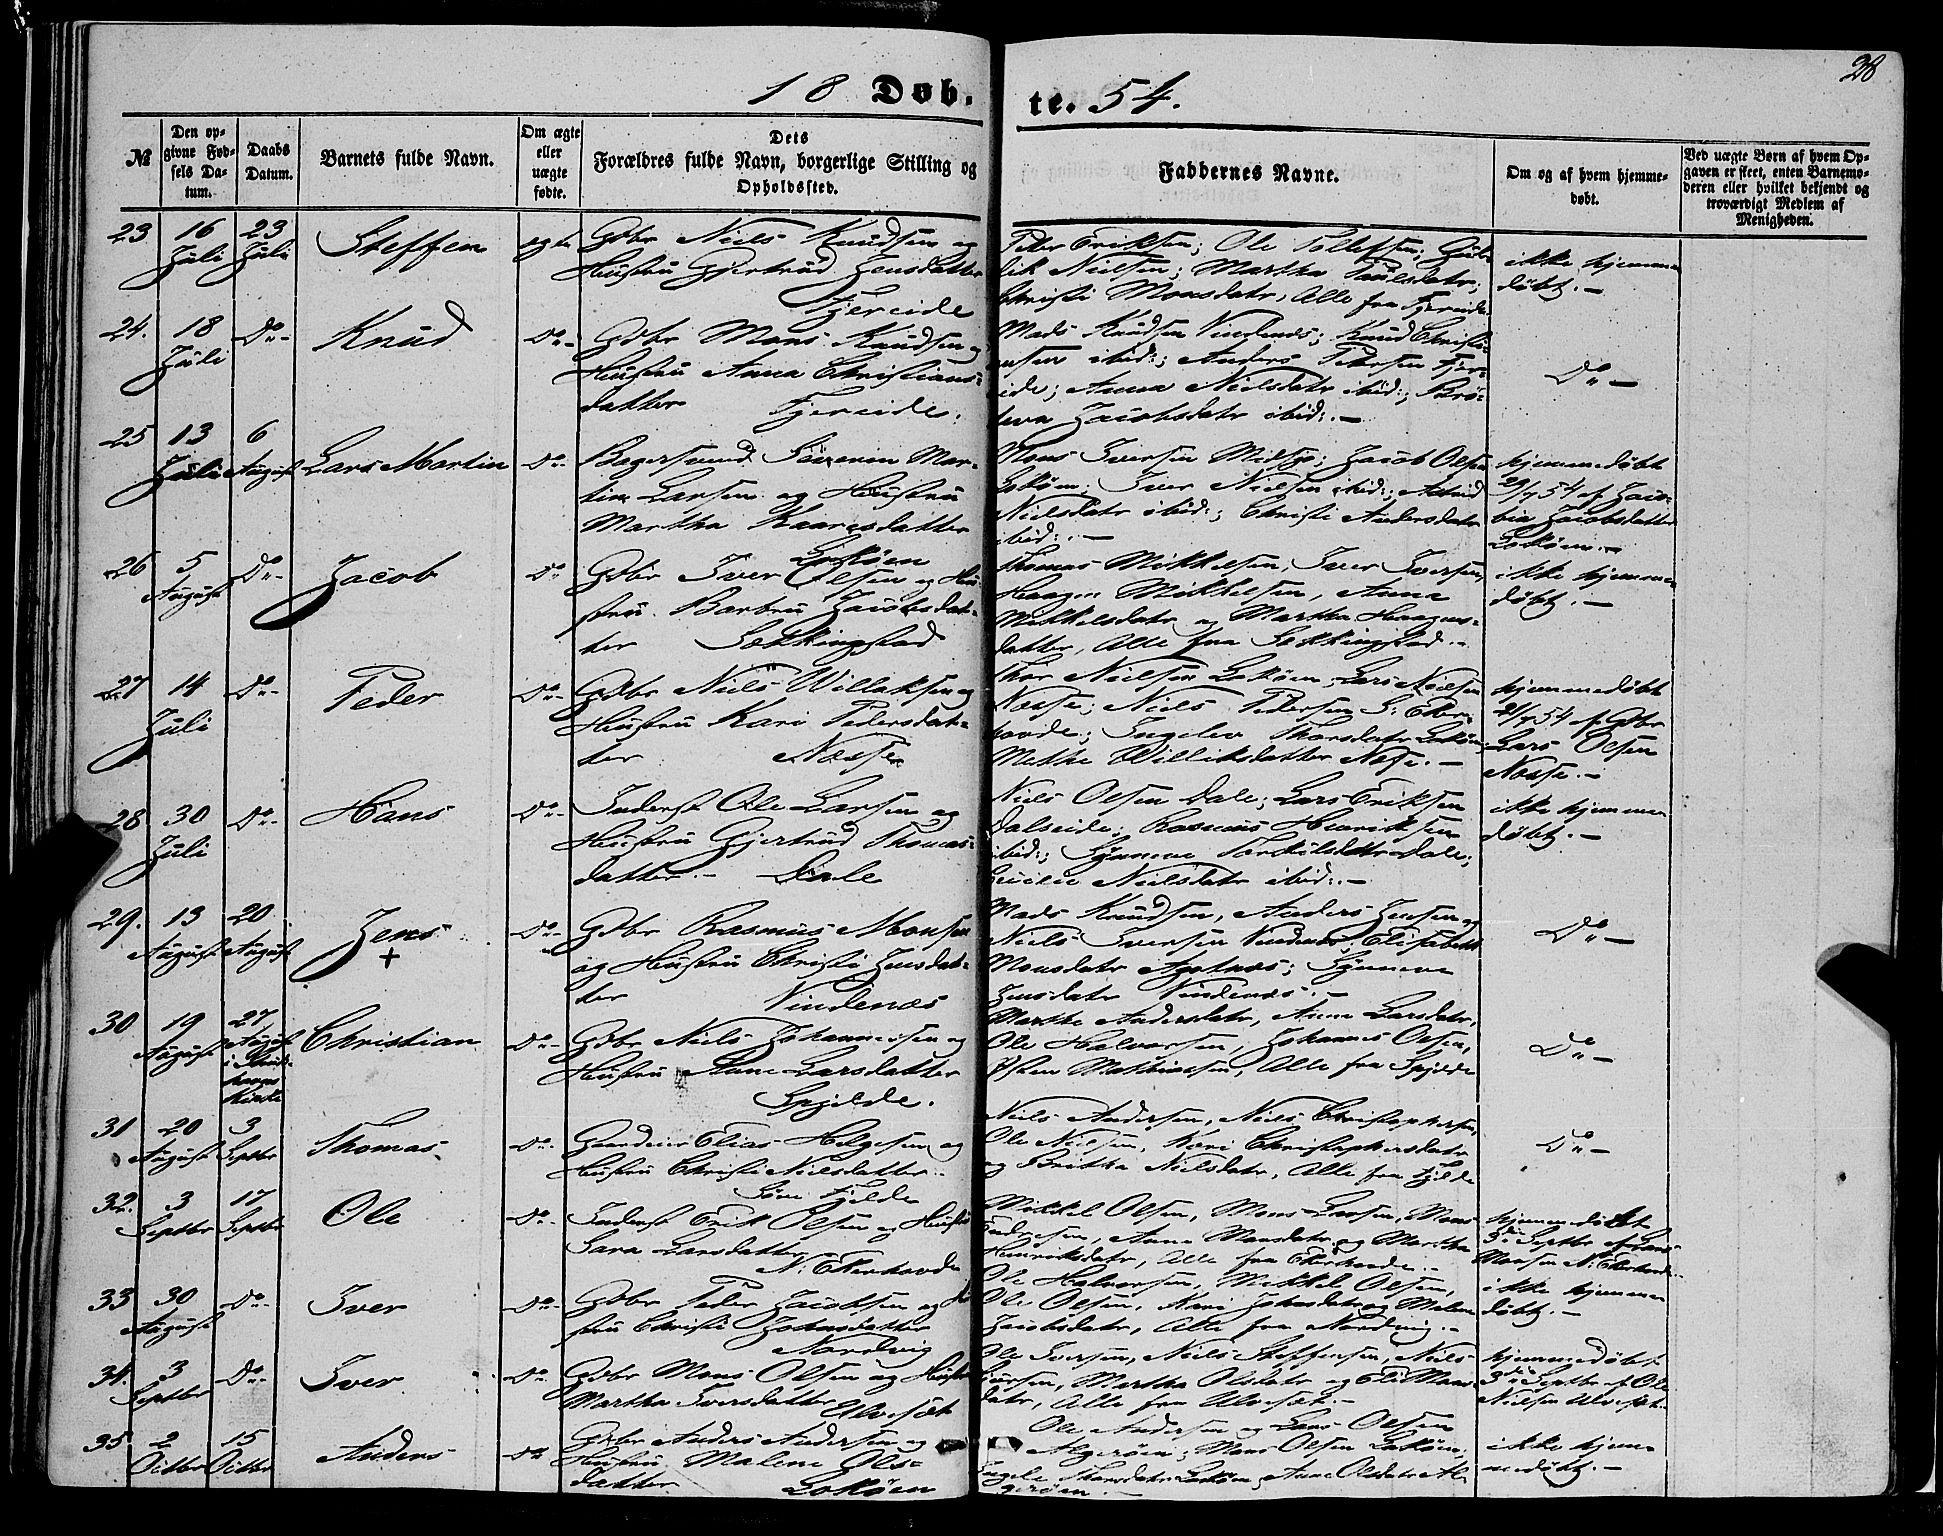 28
18 Døb-
te. 54.
№
Den op-
givne Fød-
sels Da-
tum.
Daabs
Datum.
Barnets fulde Navn.
Om ægte
eller
uægte
fødte.
Dets
Forældres fulde Navn, borgerlige Stilling og
Opholdssted.
Faddernes Navne.
Om og af hvem hjemme-
døbt.
Ved uægte Børn af hvem Op-
gaven er skeet, enten Barnemo-
deren eller hvilket bekjendt og
troværdigt Medlem af
Menigheden.
23
16
Juli
23
Juli
Steffen
ægte
Gdbr Niels Knudsen og
Hustru Gjertrud Jensdatter
Fjereide
Peder Eriksen; Ole Tollefsen;
Nielsen; Martha Paulsdatr;
Christi Monsdatr, Alle fra Fjereide.
ikke hjemme
døbt.-
24.
18
Juli
Do-
Knud
Do-
Gdbr Mons Knudsen og
Hustru Anna Christians-
datter Fjereide.
Mads Knudsen Vindenæs; Knud Christi-
ansen ibid:; Anders Petersen Fjer-
eide; Anna Nielsdatr ibid:;
Jacobsdatr ibid:.-
Do-
25
13
Juli
6
August
Lars Martin
Do-
Søveren Mar-
tin Larsen og Hustru
Martha Kaaresdatter
Lokøen
Mons Iversen Midsjø; Jacob Olsen
Lokøen; Iver Nielsen ibid:;
Nielsdatr ibid:; Christi Andersdatr
ibid:.-
hjemmedøbt
29/7 54 af Jaco-
bia Jacobsdatter
Lokøen.-
26
5
August
Do-
Jacob
Do
Gdbr Iver Olsen og Hu-
stru Barbru Jacobsdat-
ter Sekkingstad
Thomas Mikkelsen, Iver Iversen,
Haagen Mikkelsen, Anna
Mikkelsdatr og Martha Haagens-
datter, Alle fra Sekkingstad.-
ikke hjemme-
døbt.-
27
14
Juli
Do-
Peder
Do-
Gdbr Niels Willaksen og
Hustru Kari Pedersdat-
ter Næsse
Thor Nielsen Lokøen, Lars Nielsen
Næsse; Niels Pedersen S: Eker-
hovde; Ingelev Thorsdatr Lokøen,
Methe Williksdatter Næse.-
hjemmedøbt
21/7 54 af Gdbr
Lars Olsen
Næsse.-
28
30
Juli
Do-
Hans
Do-
Inderst Ole Larsen og
Hustru Gjertrud Thomas-
datter.- Dale
Niels Olsen Dale; Lars Eriksen
Dalseide; Rasmus Henriksen
ibid:; Synneve Torkilsdatr Dale;
Nielsdatr ibid:.-
ikke hjemme
døbt.-
29.
13
August
20
August
Jens
+
Do-
Gdbr Rasmus Monsen
og Hustru Christi Jensdat-
ter Vindenæs
Mads Knudsen, Anders Jensen og
Niels Iversen Vindenæs; Elisabeth
Monsdatr Agotnæs; Synneve
Jensdatr Vindenæs.-
Do-
30
19
August
27
August
i
kirke
Christian
Do-
Gdbr Niels Johannessen og
Hustru Anne Larsdatter
Spjelde.
Marthe Andersdatr, Anne Larsdatr,
Ole Halvorsen, Johannes Olsen,
Østen Mathiassen, Alle fra Spjelde
Do-
31
20
August
3
Septbr
Thomas
Do-
Elias Helgesen og
Hustru Christi Nielsdatter.
Fjelde
Niels Andersen, Niels Christophersen,
Ole Nielsen, Kari Christophersdatr
og Britha Nielsdatr, Alle fra Fjelde
Do-
32.
3
Septbr
17
Septbr
Ole
Do-
Inderst Erik Olsen og Hustru
Sara Larsdatter
N: Ekerhovde
Mikkel Olsen, Mons Larsen, Mons
Endresen, Anna Monsdatr og Martha
Henriksdatr, Alle fra Ekerhovde.-
hjemmedøbt
3die Septbr af Lars
Monsen N: Ekerhovde.-
33
30
August
Do-
Iver
Do-
Gdbr Peder Jacobsen og Hu-
stru Christi Johnsdatter
Nordvig
Ole Halvorsen, Mikkel Olsen,
Ole Olsen, Kari Johnsdatr og Malene
Jacobsdatr, Alle fra Nordvig.-
ikke hjemme
døbt.-
34.
3
Septbr
Do-
Iver
Do-
Gdbr Mons Olsen og Hustru
Martha Iversdatter
Alvesæt
Ole Iversen, Niels Steffensen, Niels
Iversen, Martha Olsdatr og Eli Mons-
datr, Alle fra Alvesæt.-
hjemmedøbt
3die Septbr af Ole
Nielsen Alvesæt.
35.
2
Octbr
15
Octbr
Anders
Do
Gdbr Anders Andersen og
Hustru Malene Ols-
datter Lokøen
Ole Andersen og Lars Olsen
Algerøen; Mons Olsen Lokøen,
Ingele Thorsdatr Lokøen, Anne Olsdatr Al-
gerøen.
ikke hjem-
medøbt.-